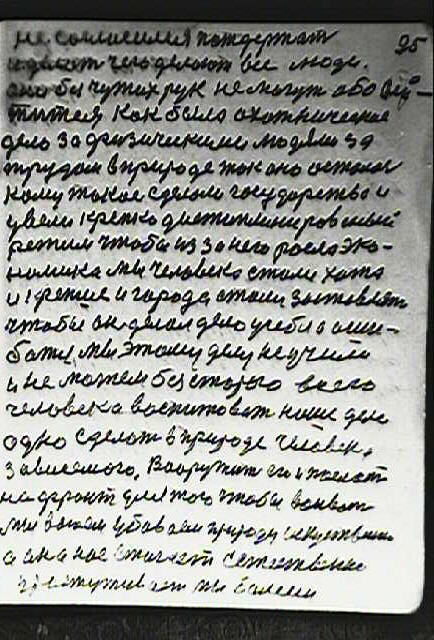 не согласился поддержать 95
и делает чего делают все люди.
оно без чужих рук не могут обойти
как было охотническое
дело за физическими людями за
трудом в природе так оно осталось
кому такое сделали государство и
увели крепко дисциплинированный
режим чтобы из за него росла эко-
номика мы человека стали
и города стали заставлять
чтобы он делал дело учебы с
мы этому делу не учили
и не можем без старого всего
человека воспитовать наше дело
одно сделать в природе человек,
зависемого, Вооружит его и послать
на фронт для того чтобы воевать
мы воюем убиваем природу искуственно
а она нас естественно
мы болеем